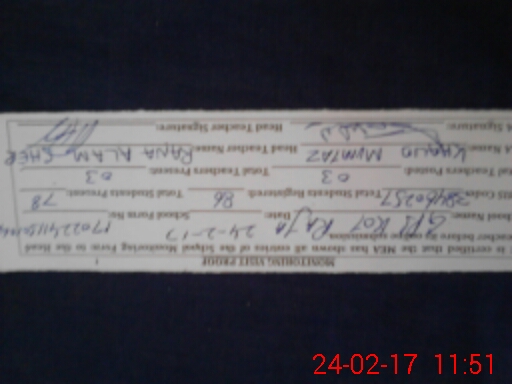 MONITORING VISIT PROOF
is certified that the MEA has shown all entries of the School Monitoring Form to the Head
teacher before its online submission.
ool Name: GPS KOT RAJA Date: 24-2-17 School Form No:
IS Code: Total Students Registered: 86 Total Students Present: 78
Teachers Posted: 03 Total Teachers Present: 03
A Name: KHALID MUMTAZ Head Teacher Name: RANA ALAM SHER
A Signature: Head Teacher Signature:
24-02-17 11:51